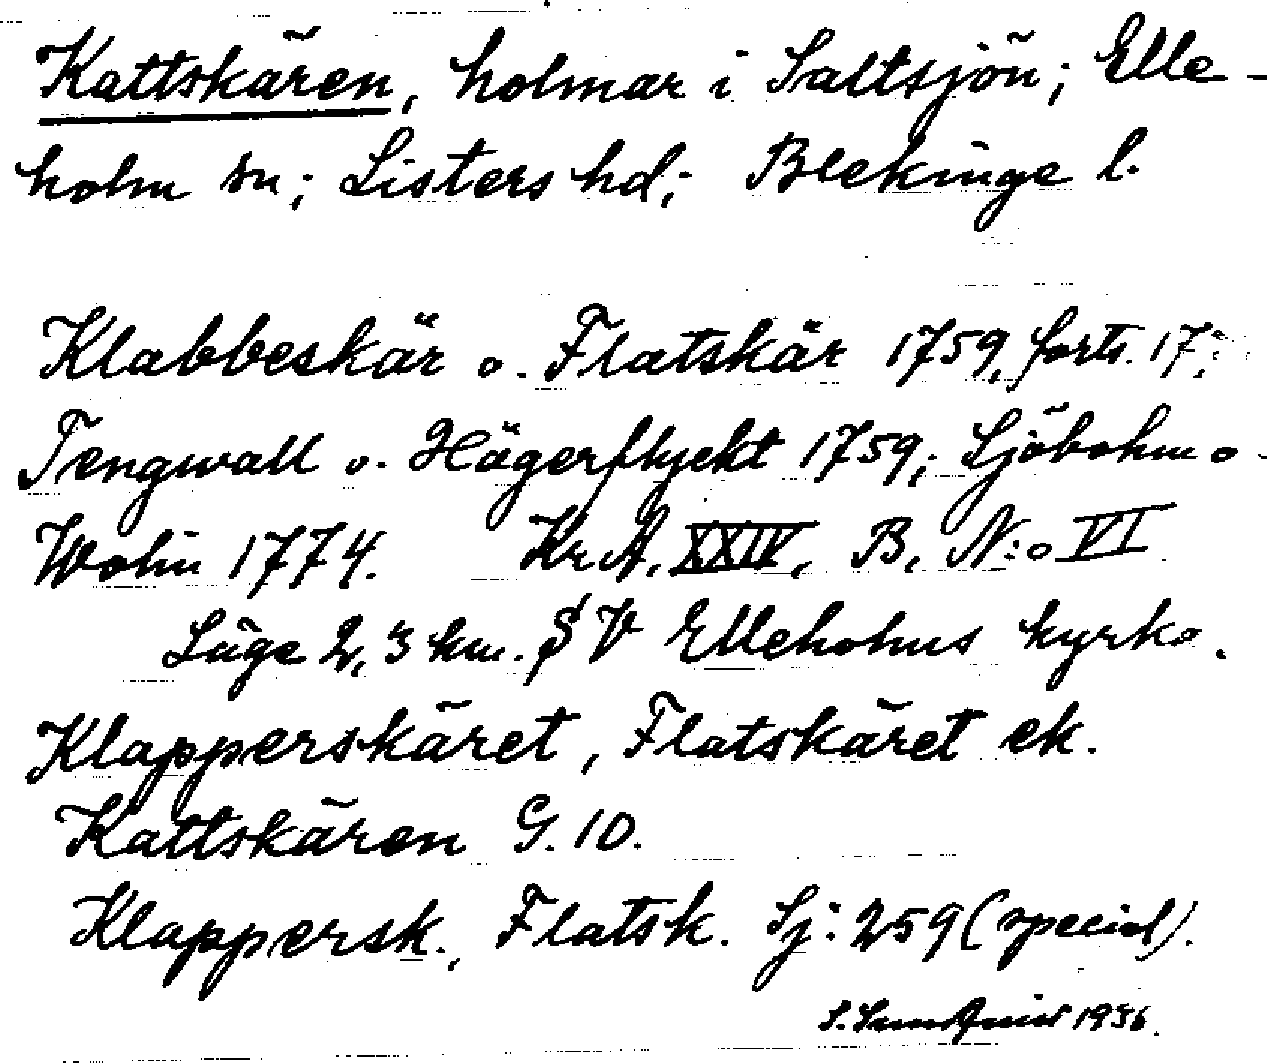 Kattskären, holmar i Saltsjön; Elle-
holm sn; Listers hd; Blekinge l.
Klabbeskär o. Flatskär 1759, forts. 17;
Tengwall o. Hägerflyckt 1759; Sjöbohm o.
Wolin 1774. Kr.A. XXIV, B, N:o VI
Läge 2,3 km. SV Elleholms kyrka.
Klapperskäret, Flatskäret ek.
Kattskären G. 10.
Klappersk., Flatsk. Sj: 259 (special).
1956.